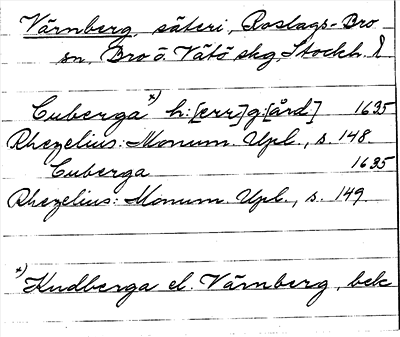 Värnberg, säteri, Roslags-Bro
sn, Bro o. Vätö skg, Stockh. l
Cuberga *) h:[err]g:[ård] 1635
Rhezelius: Monum. Upl., s. 148.
Cuberga 1635
Rhezelius: Monum. Upl., s. 149.
*) Kudberga el. Värnberg, bek